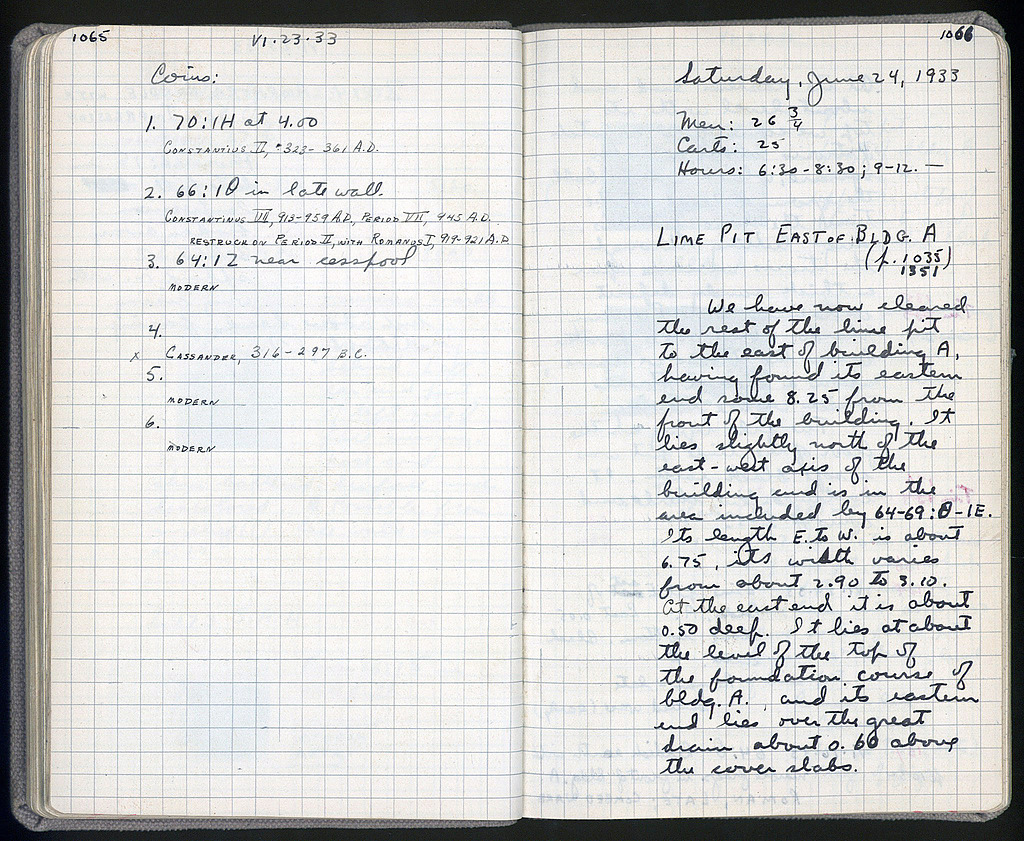 1065
VI.23.33
Coins:
1. 70:1H at 4.00
CONSTANTIUS II, 323-361 A.D.
2. 66:1Θ in late wall.
CONSTANTINUS VII, 913-959 A.D., PERIOD VII, 945 A.D.
RESTRUCK ON PERIOD II, WITH ROMANUS I, 919-921 A.D
3. 64:1Z near cesspool
MODERN
4.
x CASSANDER, 316-297 B.C.
5.
MODERN
6.
MODERN
1066
Saturday, June 24, 1933
Men: 26 3/4
Carts: 25
Hours: 6:30-8:30; 9-12. —
LIME PIT EAST OF BLDG. A
(p. 1035)
1351
We have now cleared
the rest of the lime pit
to the east of building A,
having found its eastern
end some 8.25 from the
front of the building. It
lies slightly north of the
east-west axis of the
building and is in the
area included by 64-69:Θ-IE.
Its length E. to W. is about
6.75, its width varies
from about 2.90 to 3.10.
At the east end it is about
0.50 deep. It lies at about
the level of the top of
the foundation course of
bldg. A. and its eastern
end lies over the great
drain about 0.60 above
the cover slabs.